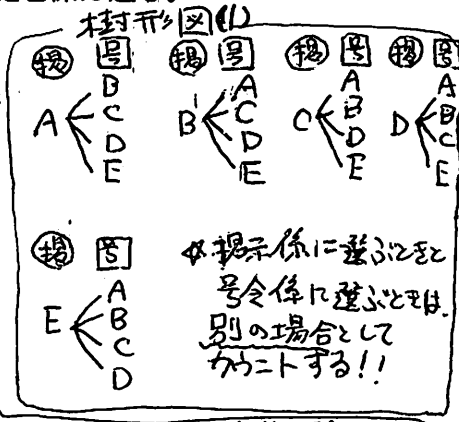 樹形図(1)
掲 号 掲 号 掲 号 掲 号
A B C D E
B A C D E
C A B D E
D A B C E
掲 号
E A B C D
☆掲示係に選ぶときと
号令係に選ぶときは、
別の場合として
カウントする!!